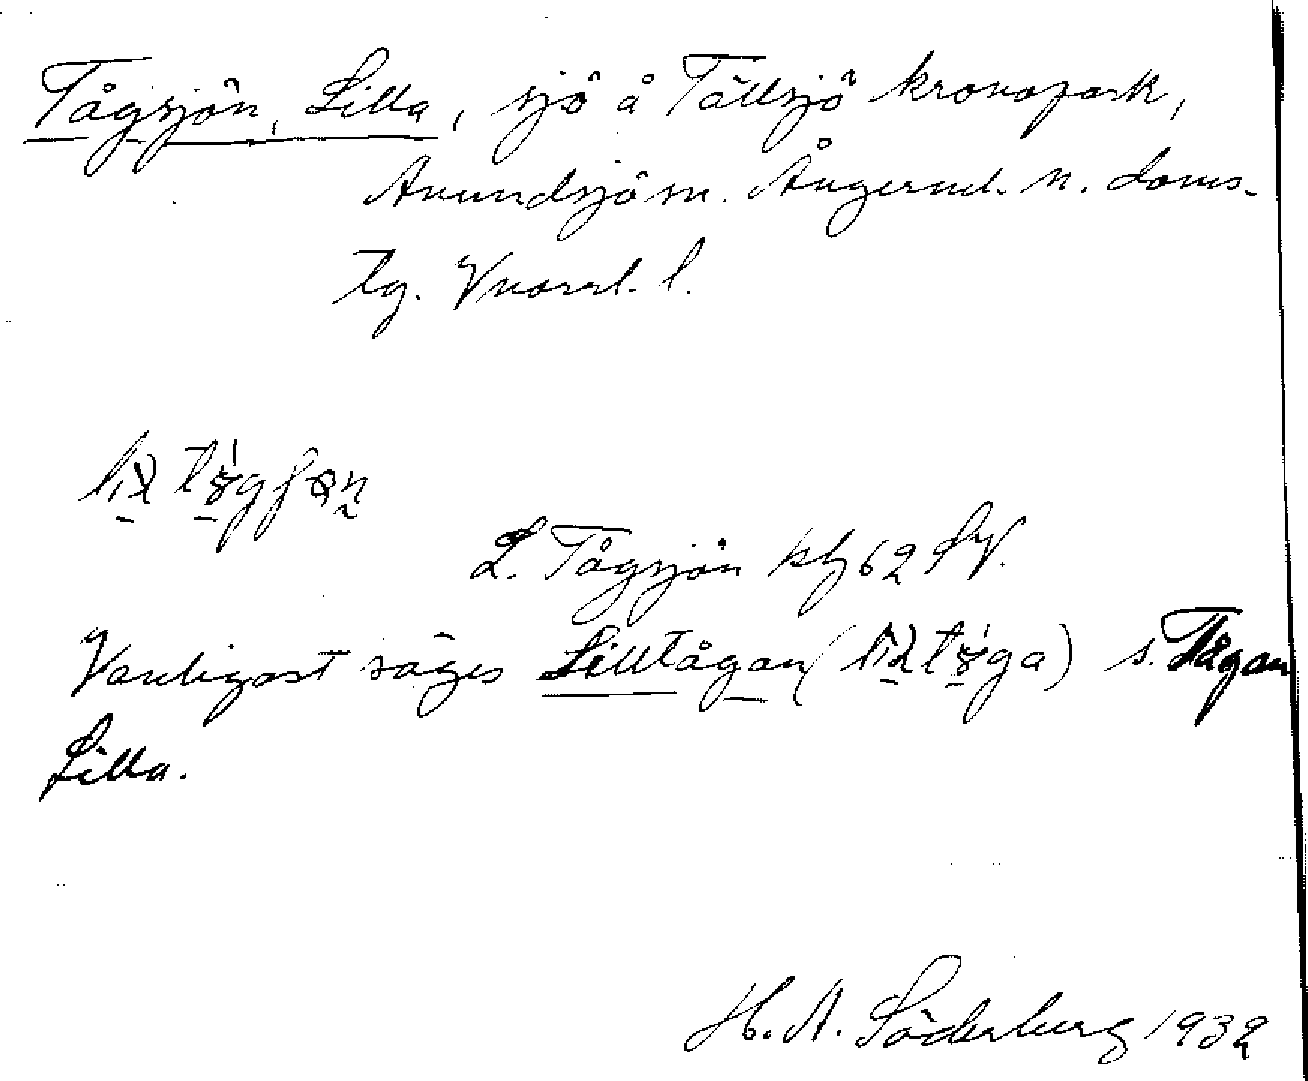 Tågsjön, Lilla, sjö å Tällsjö kronopark,
Anundsjö sn. Ångerml. n. doms-
tg. Vnorrl. l.
L. Tågsjön kbl 62 SV.
Vanligast säges Lilltågan ( ) s. Tågan
Lilla.
H. A. Söderberg 1932